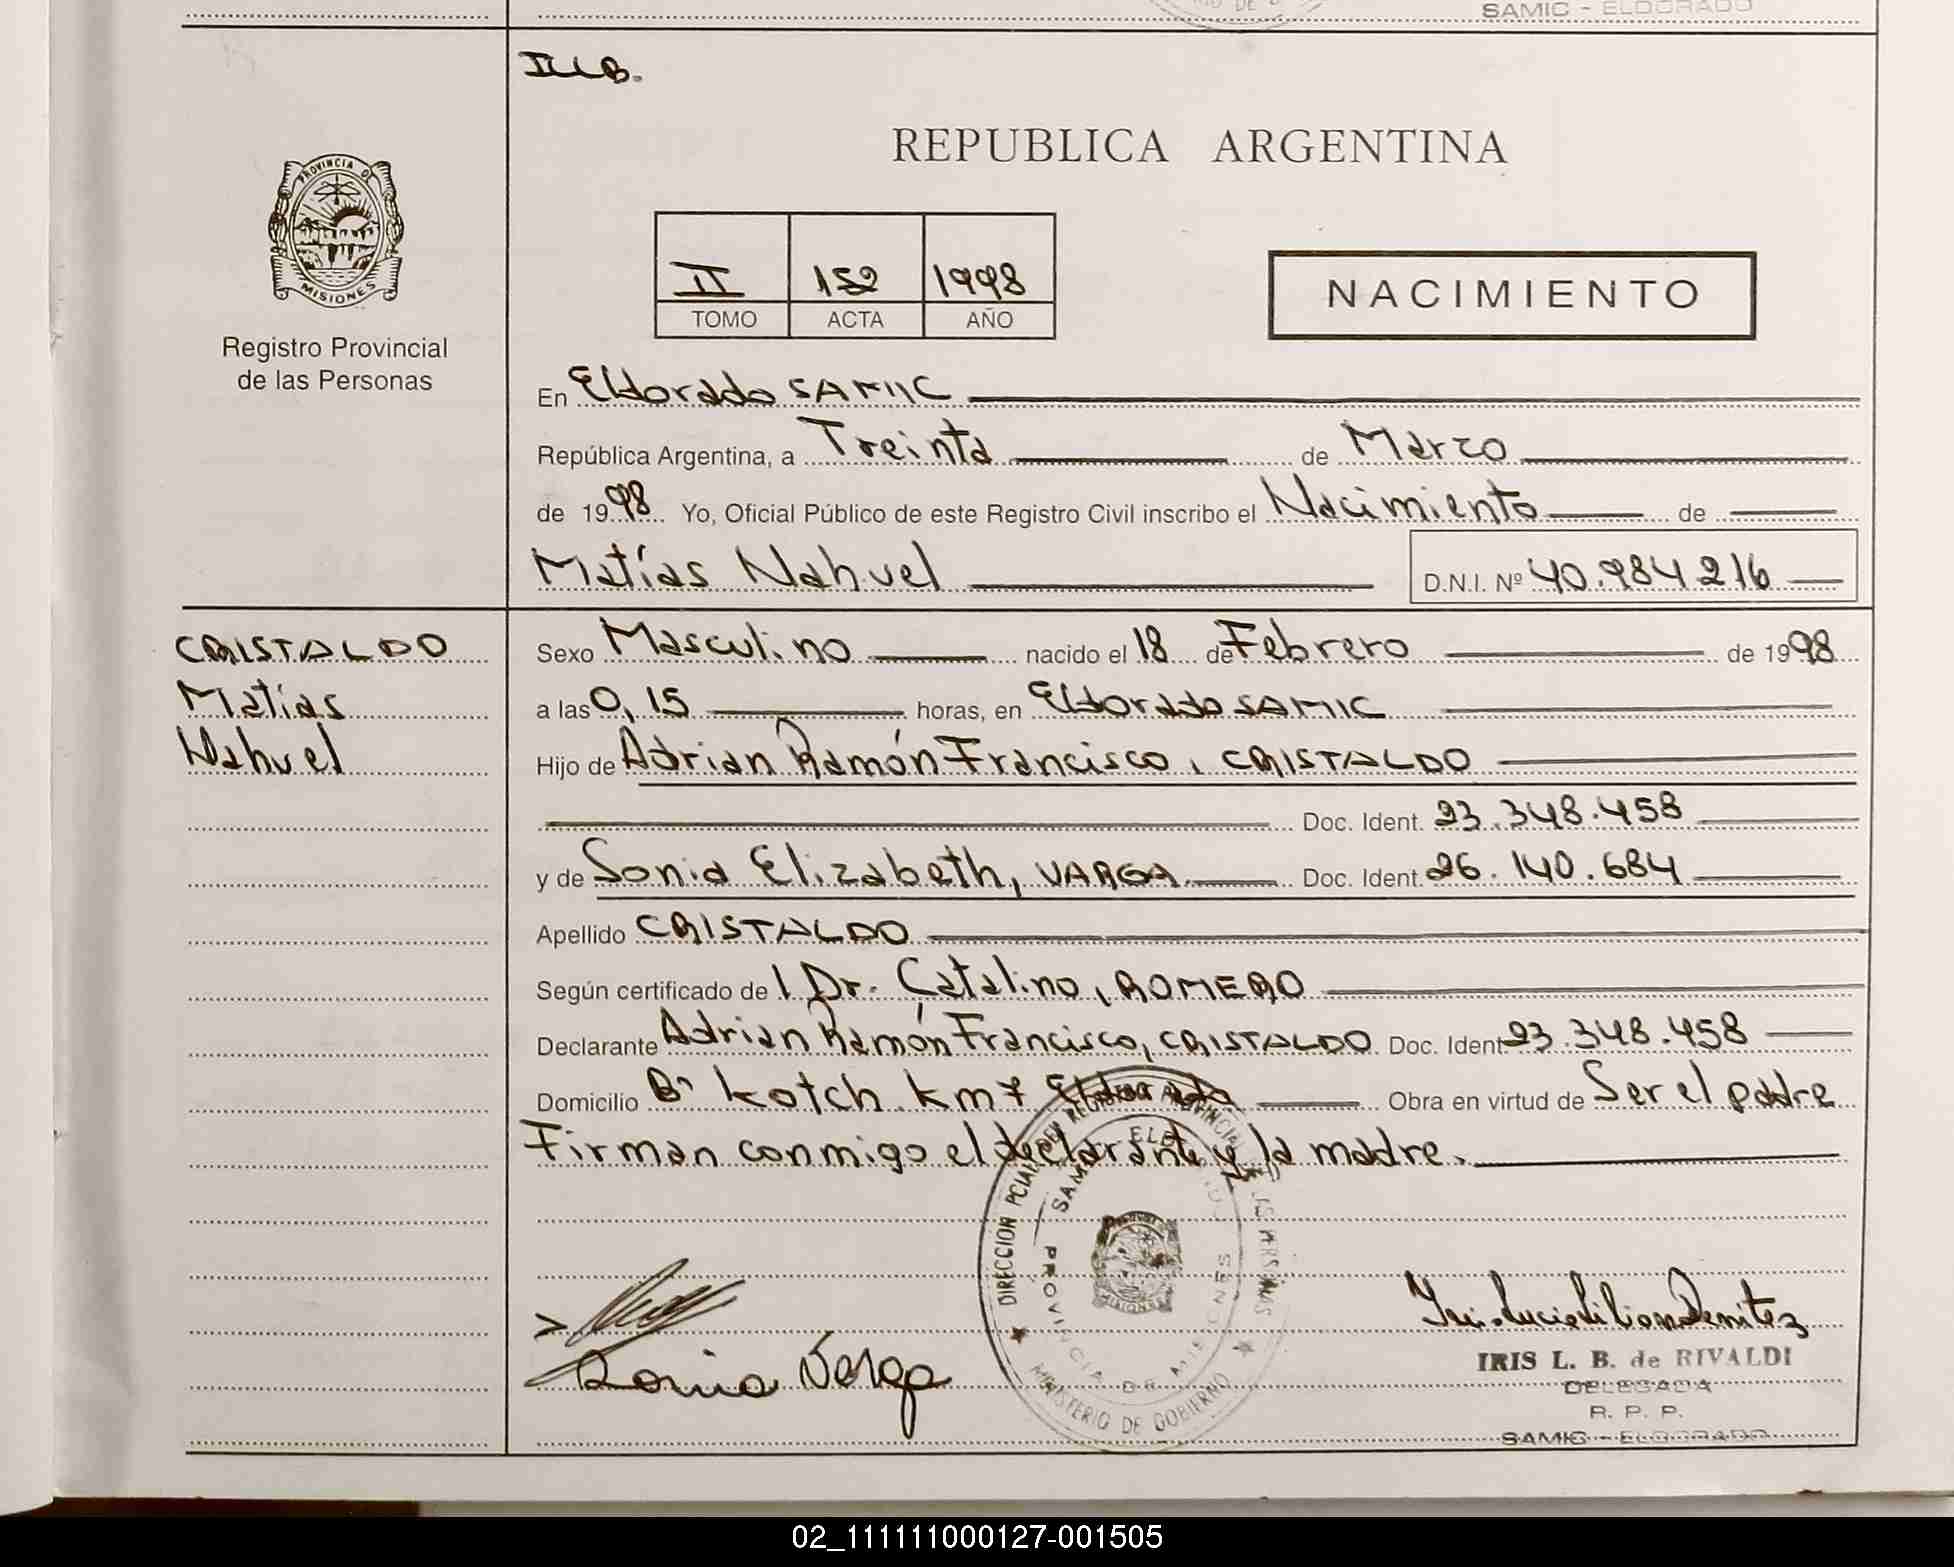 SAMIC - ELDORADO
REPUBLICA ARGENTINA
PROVINCIA DE
MISIONES
Registro Provincial
de las Personas
II 152 1998
TOMO ACTA AÑO
NACIMIENTO
En Eldorado SAMIC
República Argentina, a Treinta de Marzo
de 1998 Yo, Oficial Público de este Registro Civil inscribo el Nacimiento de
Matías Nahuel D.N.I. Nº 40.984216
CRISTALDO
Matías
Nahuel
Sexo Masculino nacido el 18 de Febrero de 1998
a las 0,15 horas, en Eldorado SAMIC
Hijo de Adrian Ramón Francisco, CRISTALDO
Doc. Ident. 23.348.458
y de Sonia Elizabeth, VARGA Doc. Ident. 26.140.684
Apellido CRISTALDO
Según certificado de l Dr. Catalino, ROMERO
Declarante Adrian Ramón Francisco, CRISTALDO Doc. Ident 23.348.458
Domicilio Bº Kotch Km 7 Eldorado Obra en virtud de Ser el padre
Firman conmigo el declarante y la madre.
DIRECCION PCIAL DEL REGISTRO PROVINCIAL DE LAS PERSONAS
MINISTERIO DE GOBIERNO
SAMIC
PROVINCIA DE MISIONES
MISIONES
Sonia Varga
IRIS L. B. de RIVALDI
DELEGADA
R. P. P.
SAMIC - ELDORADO
02_111111000127-001505